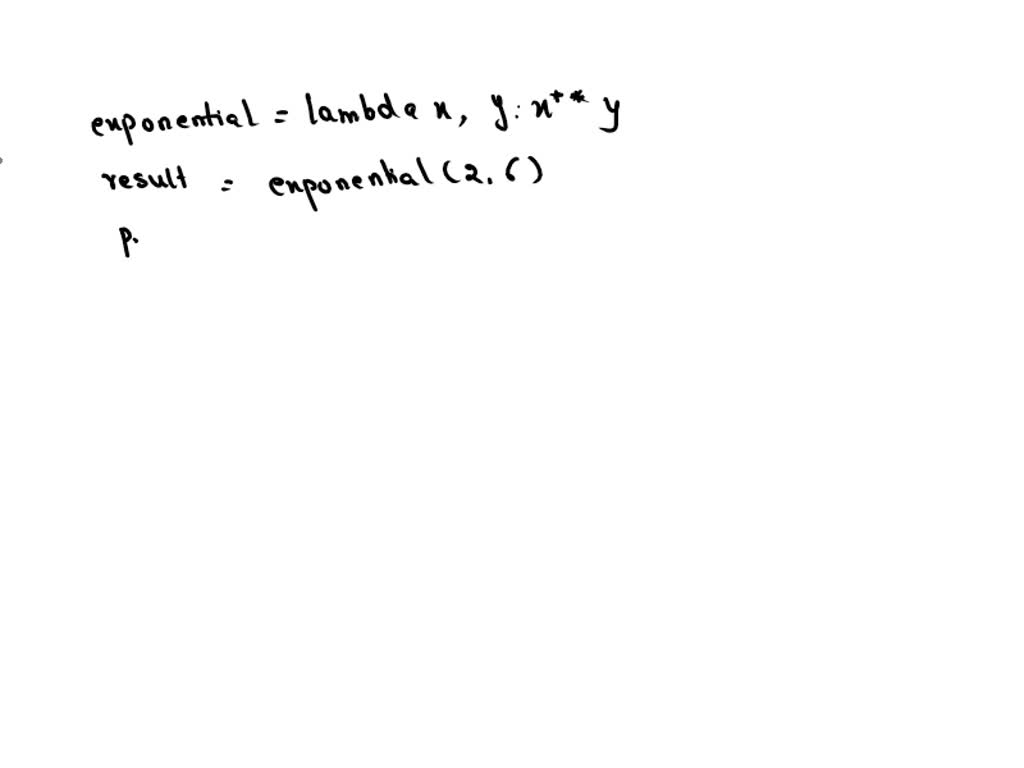 exponential = lambda x, y: x** y
result = exponential (2, 6)
p.